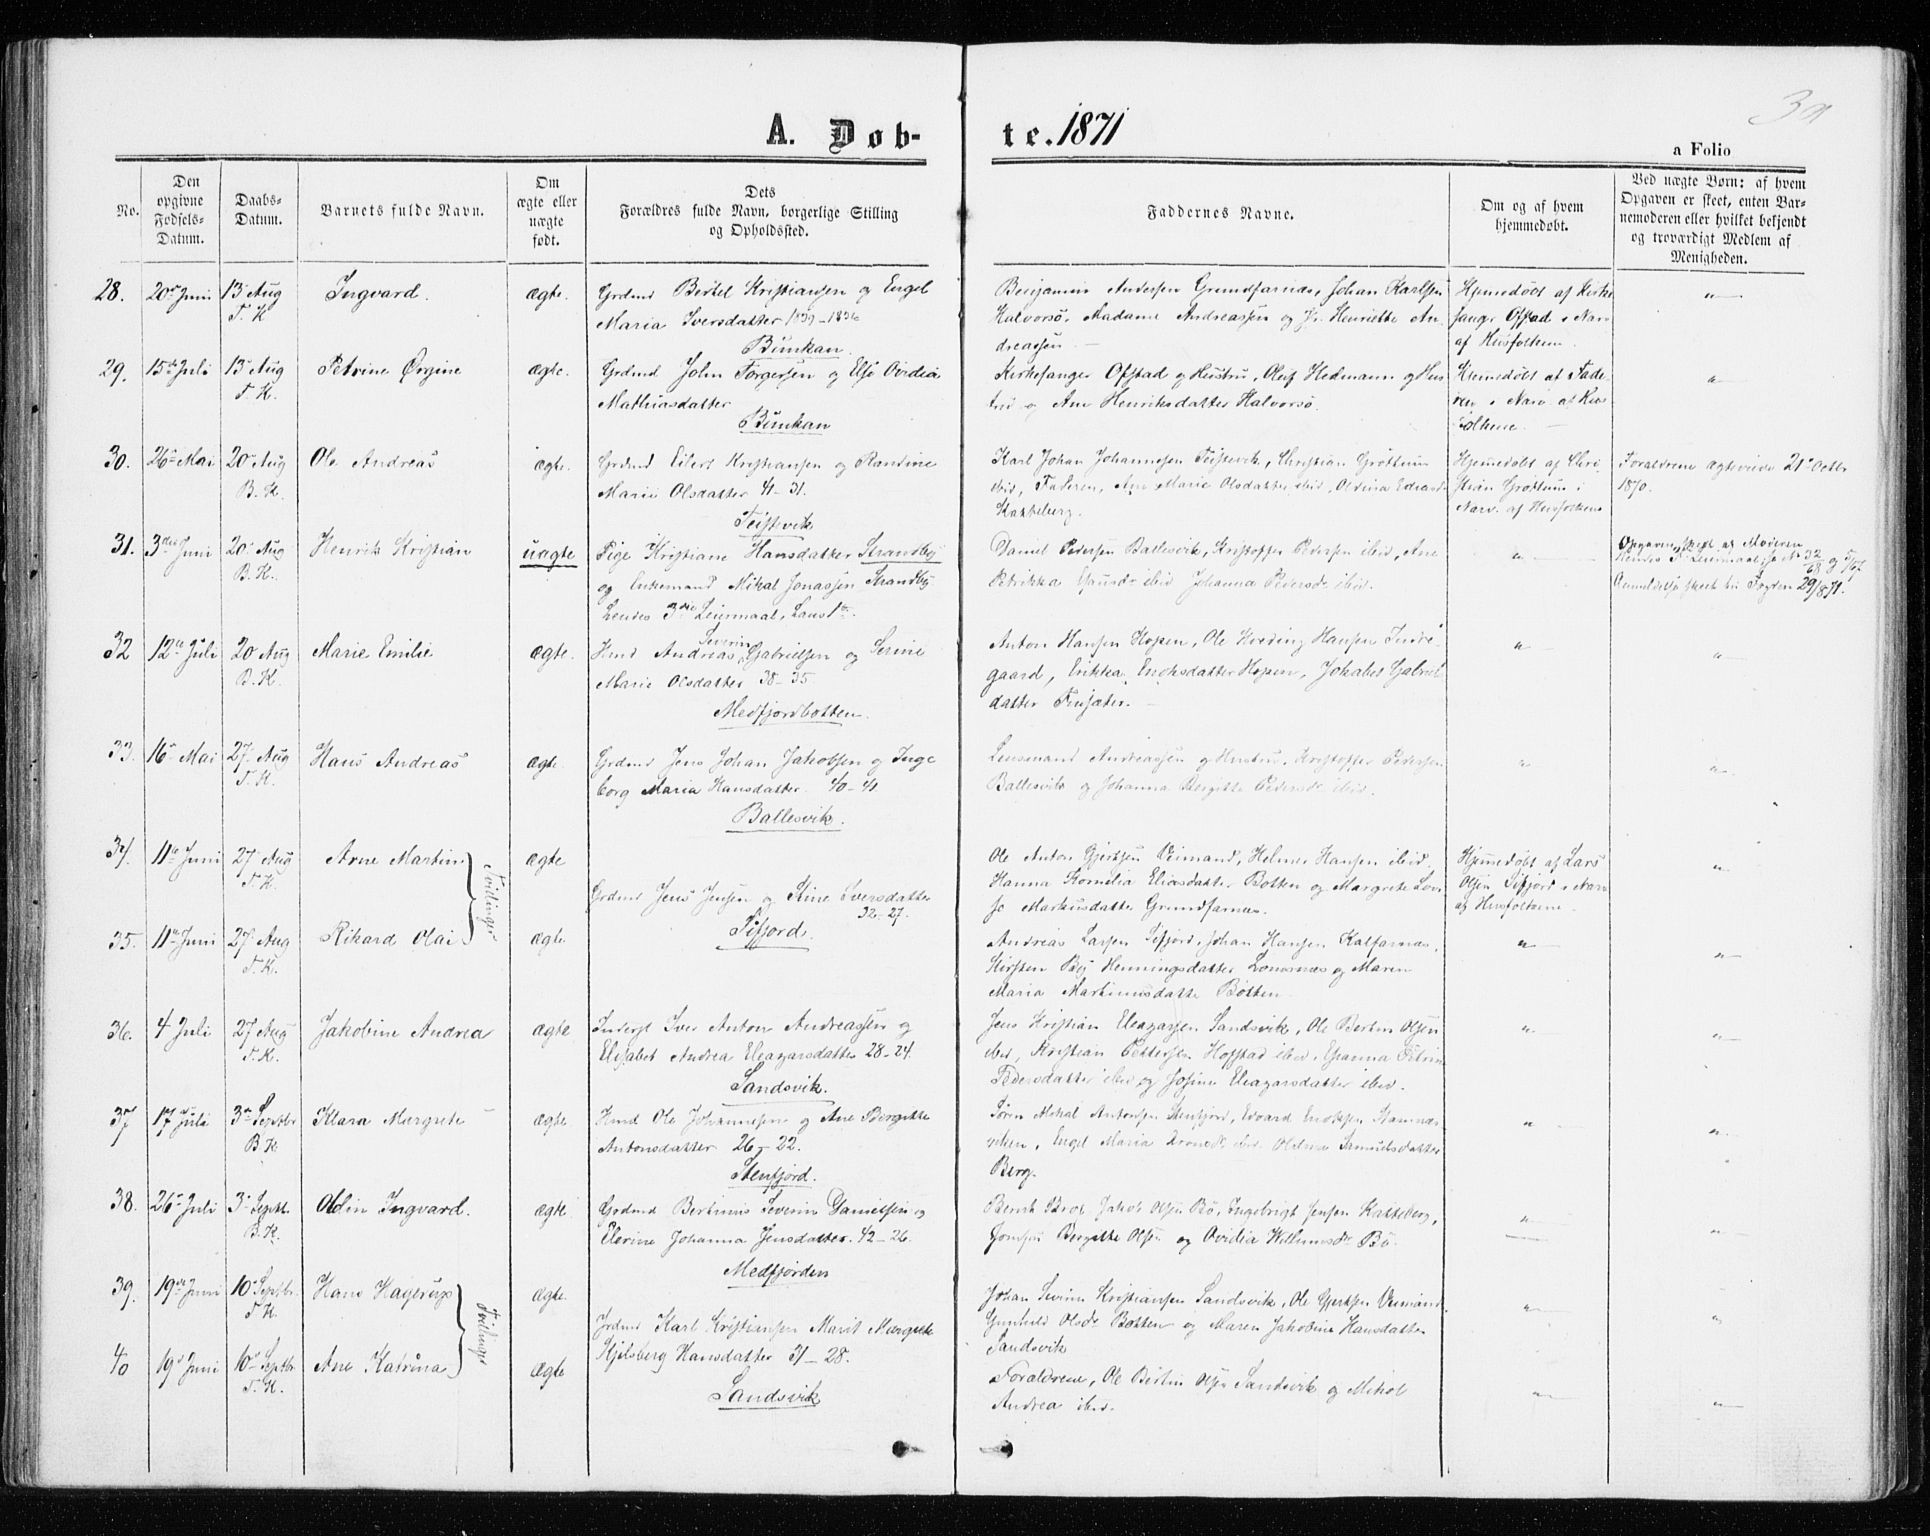 A. Døb-
te. 1871
a Folio
No.
Den opgivne Fødsels-Datum.
Daabs-Datum.
Varnets fulde Navn.
Om ægte eller uægte født.
Dets Forældres fulde Navn, borgerlige Stilling og Opholdsted.
Faddernes Navne.
Om og af hvem hjemmedøbt.
Ved uægte Børn: af hvem Opgaven er skeet, enten Barnemoderen eller hvilket bekjendt og troværdigt Medlem af Menigheden.
28. 20de Juni 13 Aug T. K. Ingvard. ægte. Grdmd Bertel Kristiansen og Engel
Maria Iversdatter 1839-1836
Bunkan.
Benjamin Andersen Grundfarnæs, Johan Karlsen
Halvorsö, Madame Andreassen og Jfr Henriette An-
dreassen
Hjemmedøbt af Kirke
sanger Ofstad i Nærv
af Husfolkene.
29. 15de Juli 13 Aug T. K. Petrine Ørgine ægte. Grdmd John Torgersen og Else Ovidia
Mathiasdatter
Bunkan
Kirkesanger Ofstad og Hustru, Oluf Hedmann og Hus
tru og Ane Henriksdatter Halvorsö.
Hjemmedøbt af Fade-
ren i Nærv af Hus
folkene.
30. 26de Mai 20 Aug B. K. Ole Andreas ægte. Grdmd Eilert Kristiansen og Randine
Marie Olsdatter 41-31.
Teistevik
Karl Johan Johannesen Teistevik, Christian Grøttum
ibid, Faderen, Ane Marie Olsdatter ibid, Oldina
Katteberg.
Hjemmedøbt af Chri
stian Grøttum i
Nærv. af Husfolkene
Forældrene ægteviede 21 Octbr
1870.
31. 3die Juni 20 Aug B. K. Henrik Kristian uægte Pige Kristiane Hansdatter Strandby
og Enkemand Mikal Jonassen Strandby
hendes 3die Leiermaal,
Daniel Pedersen Ballesvik, Kristoffer Pedersen ibid, Ane
Petrikka ibid Johanna Pedersdr ibid.
Opgaven skeet af Moderen
Anmeldelse skeet til Fogden 29/8 71.
32 12te Juli 20 Aug B. K. Marie Emilie ægte. Hmd Andreas Severin Gabrielsen og Serine
Marie Olsdatter 38-35
Medfjordbotten.
Anton Hansen Hopen, Ole Hveding Hansen Indre
gaard, Erikka Enoksdatter Hopen, Jokabet Gabriels
datter Finsæter.
33. 16de Mai 27 Aug T. K. Hans Andreas ægte. Grdmd Jens Johan Jakobsen og Inge
borg Maria Hansdatter 40-41
Ballesvik.
Lensmand Andreassen og Hustru, Kristoffer Pedersen
Ballesvik og Johanna Bergitte Pedersdr ibid.
34. 11te Juni 27 Aug T. K. Arne Martin Tvillinger ægte
Grdmd Jens Jensen og Stine Iversdatter
32-27.
Sifjord
Ole Anton Gjertsen Veimand, Helmer Hansen ibid.
Hanna Kornelia Eliasdatter Botten og Margrete Lov
ise Markusdatter Grundfarnæs.
Hjemmedøbt af Lars
Olsen Sifjord i Nærv
af Husfolkene.
35. 11te Juni 27 Aug T. K. Rikard Olai ægte.
Andreas Larsen Sifjord, Johan Hansen Kalfarnæs,
Kirsten Bej Henningsdatter Lonesnæs og Maren
Maria Martinusdatter Botten
36. 4 Juli 27 Aug T. K. Jakobine Andrea ægte Inderst Iver Anton Andreassen og
Elisabet Andrea Eleazarsdatter 28-24.
Sandsvik.
Jens Kristian Eleazarsen Sandsvik, Ole Bertin Olsen
ibid, Kristian Pettersen Hofstad ibid, Petrine
Pedersdatter ibid og Josine Eleazarsdatter ibid.
37 17 Juli 3 Septbr B. K Klara Margrete ægte. Hmd Ole Johannesen og Ane Bergitte
Antonsdatter 26-22.
Stenfjord.
Søren Mikal Antonsen Stenfjord, Edvard Enoksen
Engel Maria ibid Oldine Samuelsdatter
Berg.
38. 26de Juli 3 Septbr. B. K. Odin Ingvard. ægte. Grdmd Bertinus Severin Danielsen og
Elerine Johanna Jensdatter. 42-26.
Medfjorden
Bernt Brox Jakob Olsen Bö, Ingebrigt Jensen Katteberg,
Jomfru Bergitte Olsen og Ovidia Bö.
39. 19de Juni 10 Septbr. T. K. Hans Hagerup Tvillinger ægte.
Grdmd Karl Kristiansen Marit Margrete
Kjelsberg Hansdatter 31-28.
Sandsvik
Johan Severin Kristiansen Sandsvik, Ole Gjertsen Veimand
Gunhild Olsdr Botten og Maren Jakobine Hansdatter
Sandsvik
40 19 Juni 10 Septbr T. K. Ane Katrina ægte
Forældrene, Ole Bertin Olsen Sandsvik og Mikol
Andrea ibid.